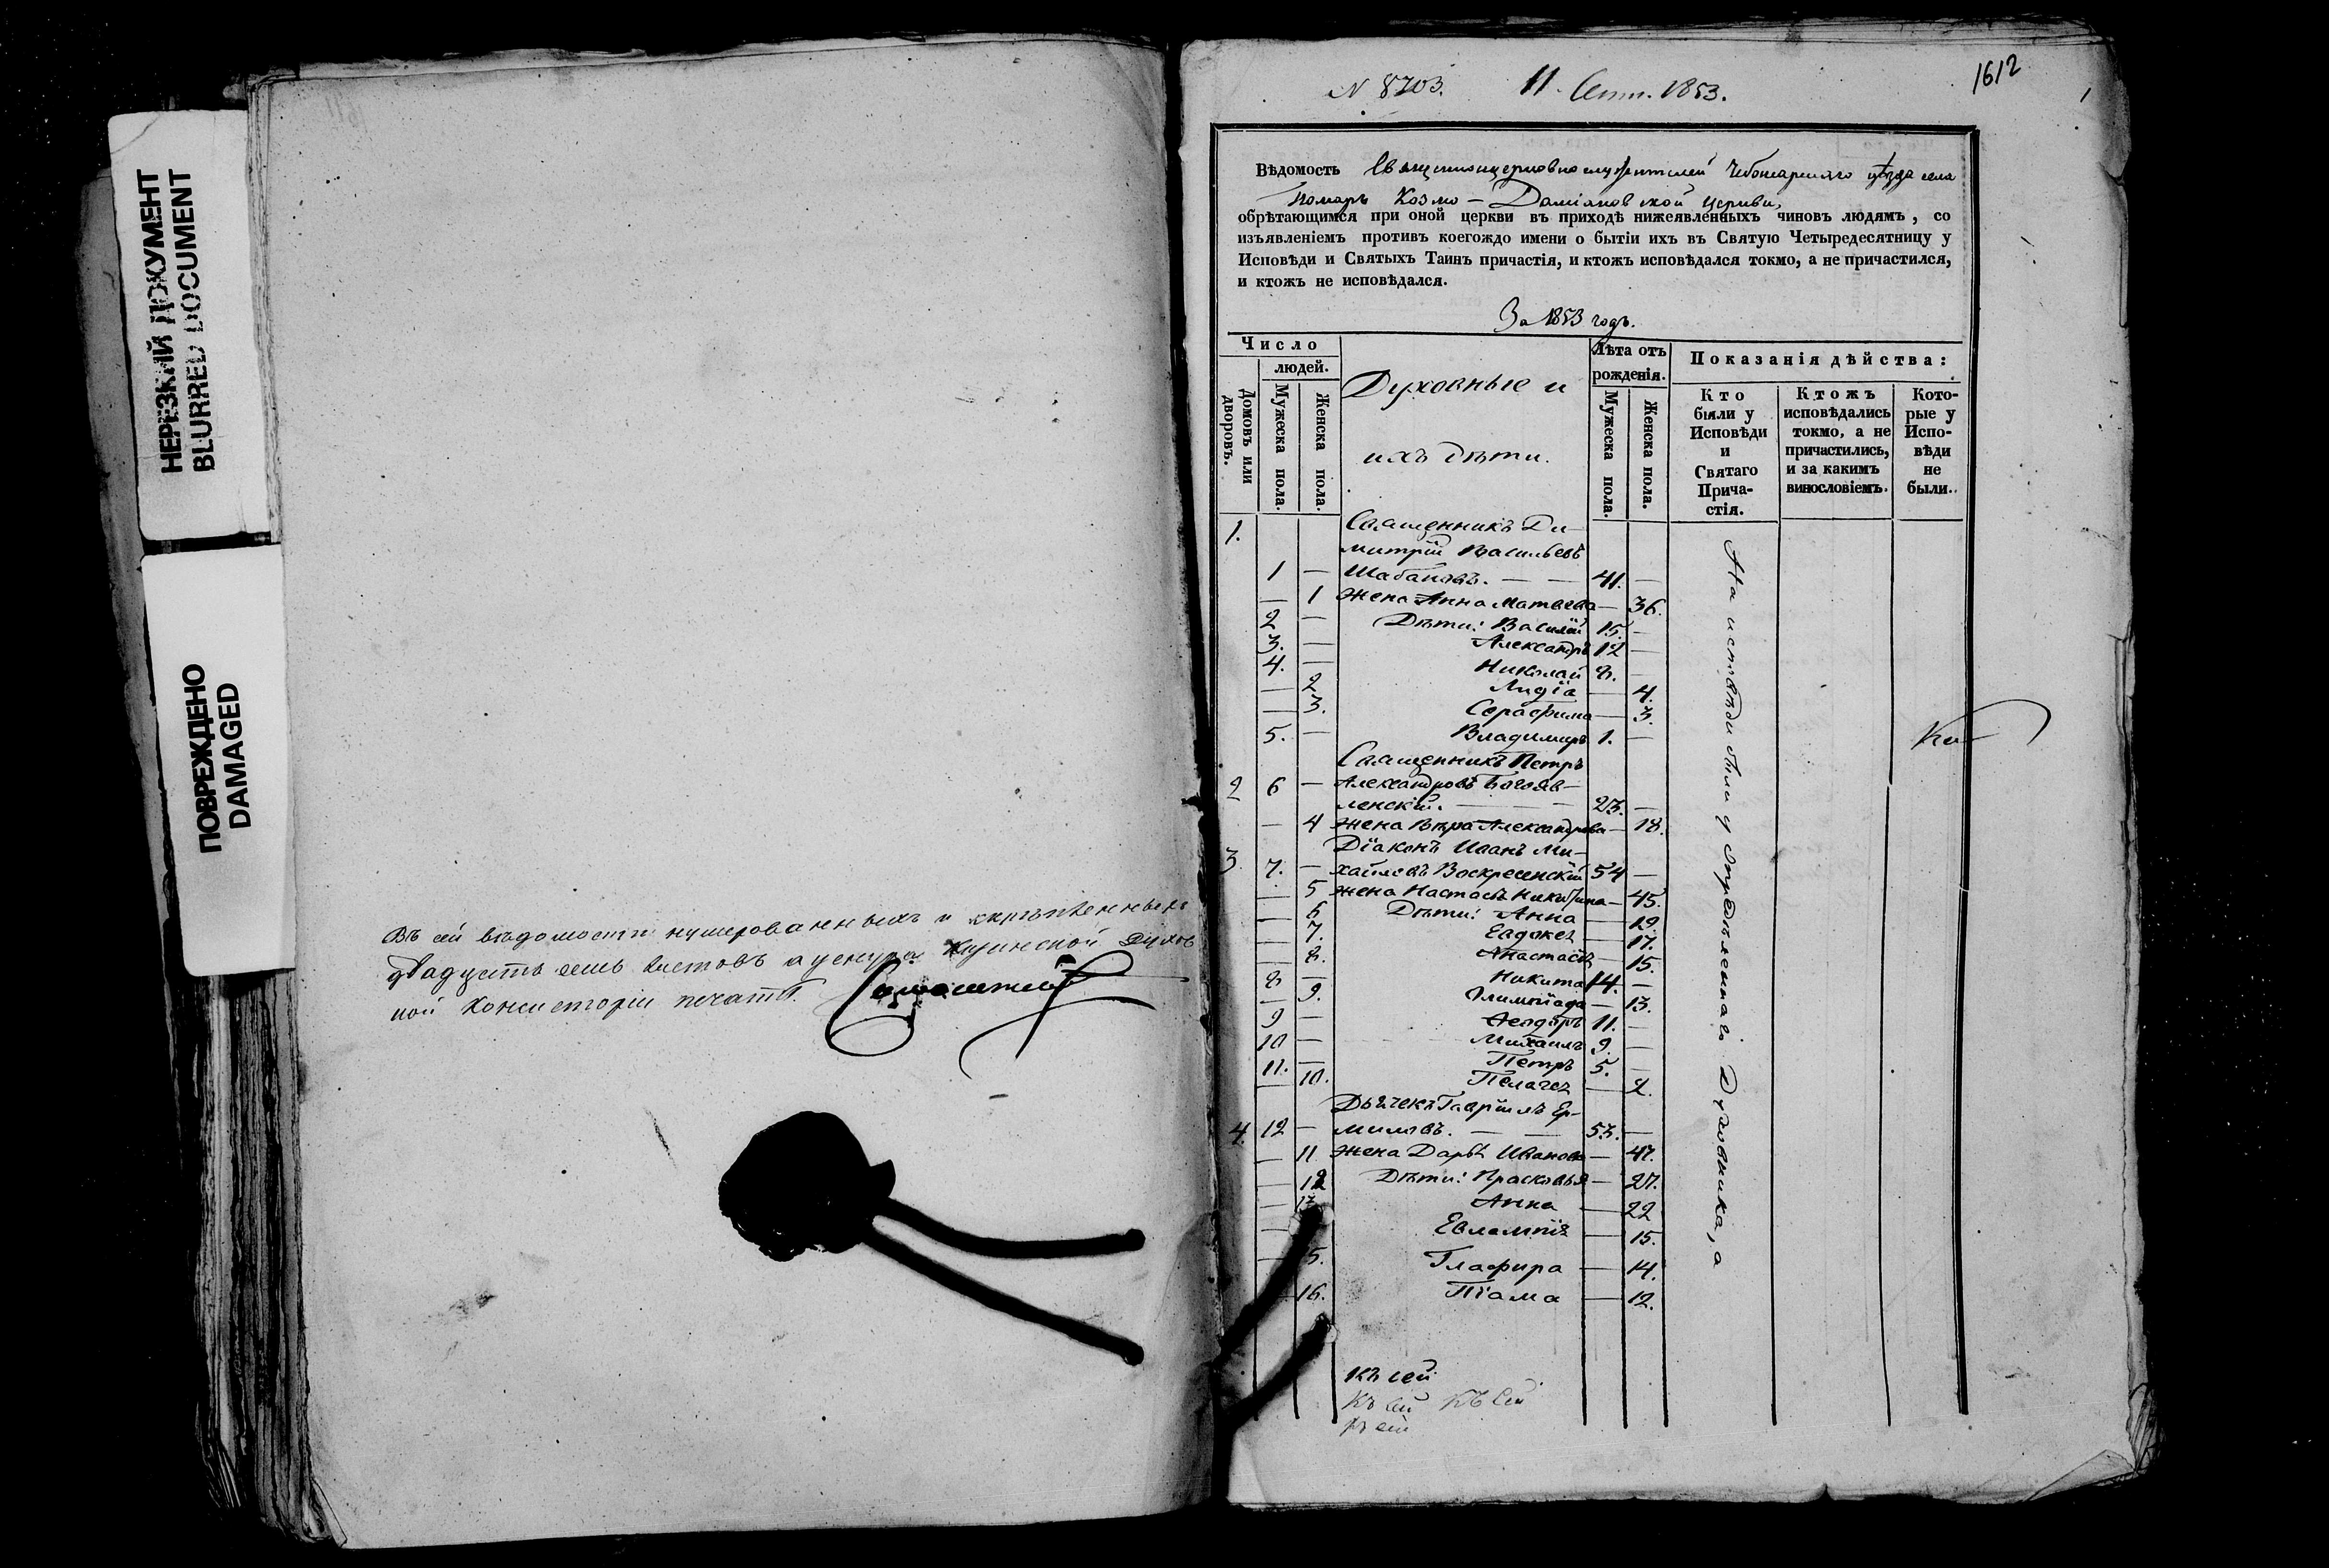 НЕРЕЗКИЙ ДОКУМЕНТ
BLURRED DOCUMENT
ПОВРЕЖДЕНО
DAMAGED
Въ сей вѣдомости нумерованныхъ и скрѣпленныхъ
двадцать семь листовъ
ной Консисторіи печать.
N 8703. 11. Сент. 1853.
1612
1
Вѣдомость Священноцерковнослужителей Чебоксарскаго уѣзда села
Помаръ Козмо-Даміановской церкви,
обрѣтающимся при оной церкви въ приходѣ нижеявленныхъ чиновъ людямъ, со
изъявленіемъ противъ коегождо имени о бытіи ихъ въ Святую Четыредесятницу у
Исповѣди и Святыхъ Таинъ причастія, и ктожъ исповѣдался токмо, а не причастился,
и ктожъ не исповѣдался.
За 1853 годъ.
Число
людей.
Домовъ или дворовъ.
Мужеска пола.
Женска пола.
Духовные и
ихъ дѣти.
Лѣта отъ
рожденія.
Мужеска пола.
Женска пола.
Показанія дѣйства:
Кто
были у
Исповѣди
и
Святаго
Прича-
стія.
Ктожъ
исповѣдались
токмо, а не
причастились,
и за какимъ
винословіемъ.
Кото-
рые у
Испо-
вѣди
не
были.
1. Священникъ Ди-
митрій Васильевъ
1 — Шабановъ. — — 41. —
— 1 жена Анна Матвѣева — 36.
2 — Дѣти: Василій 15. —
3. — Александръ 12 —
4. — Николай 8. —
— 2 Лидія — 4.
— 3. Серафима — 3.
5. — Владимиръ 1. —
Священникъ Петръ
2 6 — Александровъ Богояв-
ленскій. — — 23. —
— 4 жена Вѣра Александрова — 18.
Діаконъ Иванъ Ми-
3. 7. — хайловъ Воскресенскій 54 —
— 5 жена Настасья Никитина — 45.
— 6 Дѣти: Анна — 19.
— 7. Евдокея — 17.
— 8. Анастасія — 15.
8 — Никита 14. —
— 9. Олимпіада — 13.
9 — Ѳеодоръ 11. —
10 — Михаилъ 9. —
11. — Петръ 5. —
— 10. Пелагея — 2.
Дьячекъ Гавріилъ Ер-
4. 12 — миловъ. — — 53. —
— 11 жена Дарья Иванова — 47.
— 12 Дѣти: Прасковья — 27.
— 13. Анна — 22
— Евлампія — 15.
— 5. Глафира — 14.
16. Піама — 12.
На исповѣди были у опредѣленнаго Духовника, а
Къ сей
Къ сей Къ сей
Къ сей